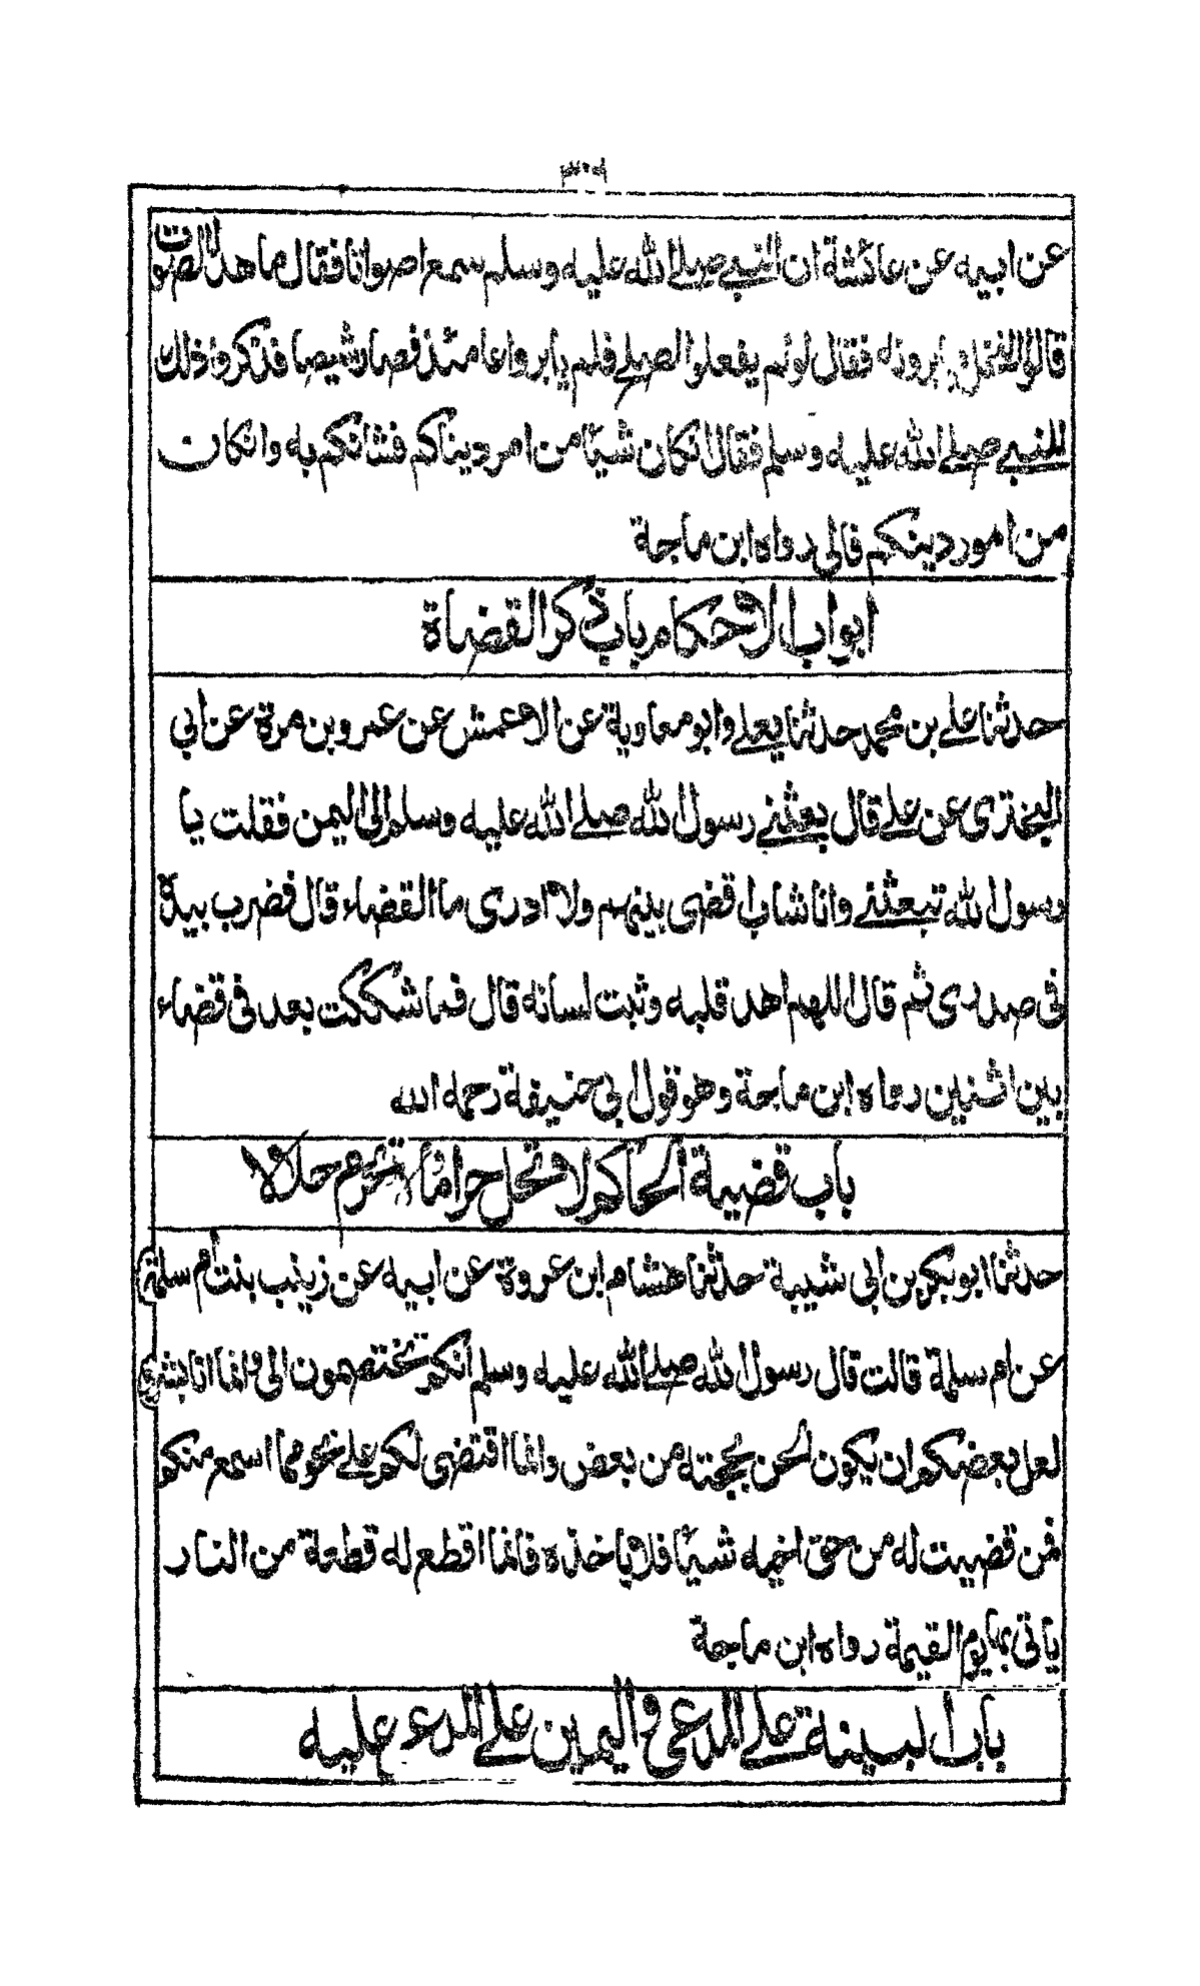 ٣٠٩
عن ابيه عن عائشة ان النبي صلے الله عليه وسلم سمع اصواتا فقال ما هذا الصوت
قالوا النخل يابروزنه فقال لو لم يفعلوا لصلح فلم يابروا عامئذ فصار شيصا فذكروا ذلك
للنبي صلے الله عليه وسلم فقال ان كان شيئا من امر دينا كم فشانكم به وان كان
من امور دينكم فالي رواه ابن ماجة
ابواب الاحكام باب ذكر القضاة
حدثنا علے بن محمد حدثنا يعلے وابو معاوية عن الاعمش عن عمرو بن مرة عن ابي
البختري عن علے قال بعثني رسول الله صلے الله عليه وسلم الى اليمن فقلت يا
رسول الله تبعثني وانا شاب اقضى بينهم ولا ادرى ما القضاء قال فضرب بيده
فى صدرى ثم قال اللهم اهد قلبه وثبت لسانه قال فما شككت بعد فى قضاء
بين اثنين رواه ابن ماجة وهو قول ابي حنيفة رحمه الله
باب قضية الحاكم لا تحل حراما ولا تحرم حلالا
حدثنا ابو بكر بن ابي شيبة حدثنا هشام ابن عروة عن ابيه عن زينب بنت ام سلمة
عن ام سلمة قالت قال رسول الله صلے الله عليه وسلم انكم تختصمون الى وانما انا بشر و
لعل بعضكم ان يكون الحن بحجته من بعض وانما اقتضى لكم علے نحو مما اسمع منكم
فمن قضيت له من حق اخيه شيئا فلا ياخذه فانما اقطع له قطعة من النار
ياتى بها يوم القيمة رواه ابن ماجة
باب البينة علے المدعى واليمين علے المدعى عليه